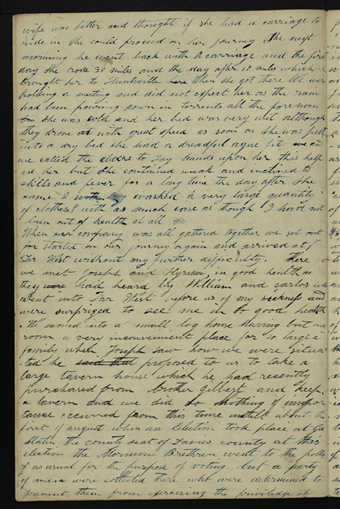 wife was better and thought if she had a carriage to
ride in she could proceed on her journey The next
morning he went back with a carriage and the first
day she rode 30 miles and the day after 10 miles which
brought her to Huntsville here When she got there We were
holding a meeting and did not expect her as the rain
had been pouring down in torrents all the forenoon
she was cold and her bed was very wet although
they drove with great speed as soon as she was put
into a dry bed she had a dreadful ague fit
we called the elders to lay hands upon her this help
ed her but she continued weak and inclined to
chills and fever for a long time the day after she
came I washed a very large quantity
of clothes with as much ease as though I had not
been out of health at all
When our company was all gathered together we set out
or started on our journey again and arrived at
Far West without any further difficulty. Here
we met Joseph and Hyrum, in good health as
they were had heard by William and carlos who
went into Far West before us of my sickness and
were surprized to see me in so good health
We moved into a small log house having but one
room a very inconvenient place for so large a
family when Joseph saw how we were situa
ted he proposed to us to take a
large tavern house which he had recently
purchased from brother gilbert and keep
a tavern and we did so Nothing of impor
tance occured from this time untill about the
first of august when an Election took place at Ga
llatin the county seat of Davies county at this
election the Mormons Brethren went to the polls
as usual for the purpose of voting but a party
of men were collected there who were determined to
prevent them from exercising the privilege of